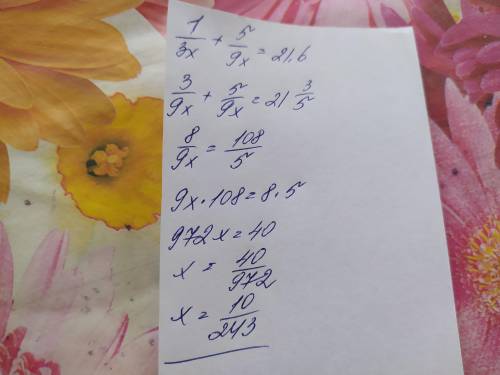 1/3x + 5/9x = 21,6
3/9x + 5/9x = 21 3/5
8/9x = 108/5
9x·108=8·5
972x=40
x = 40/972
x = 10/243